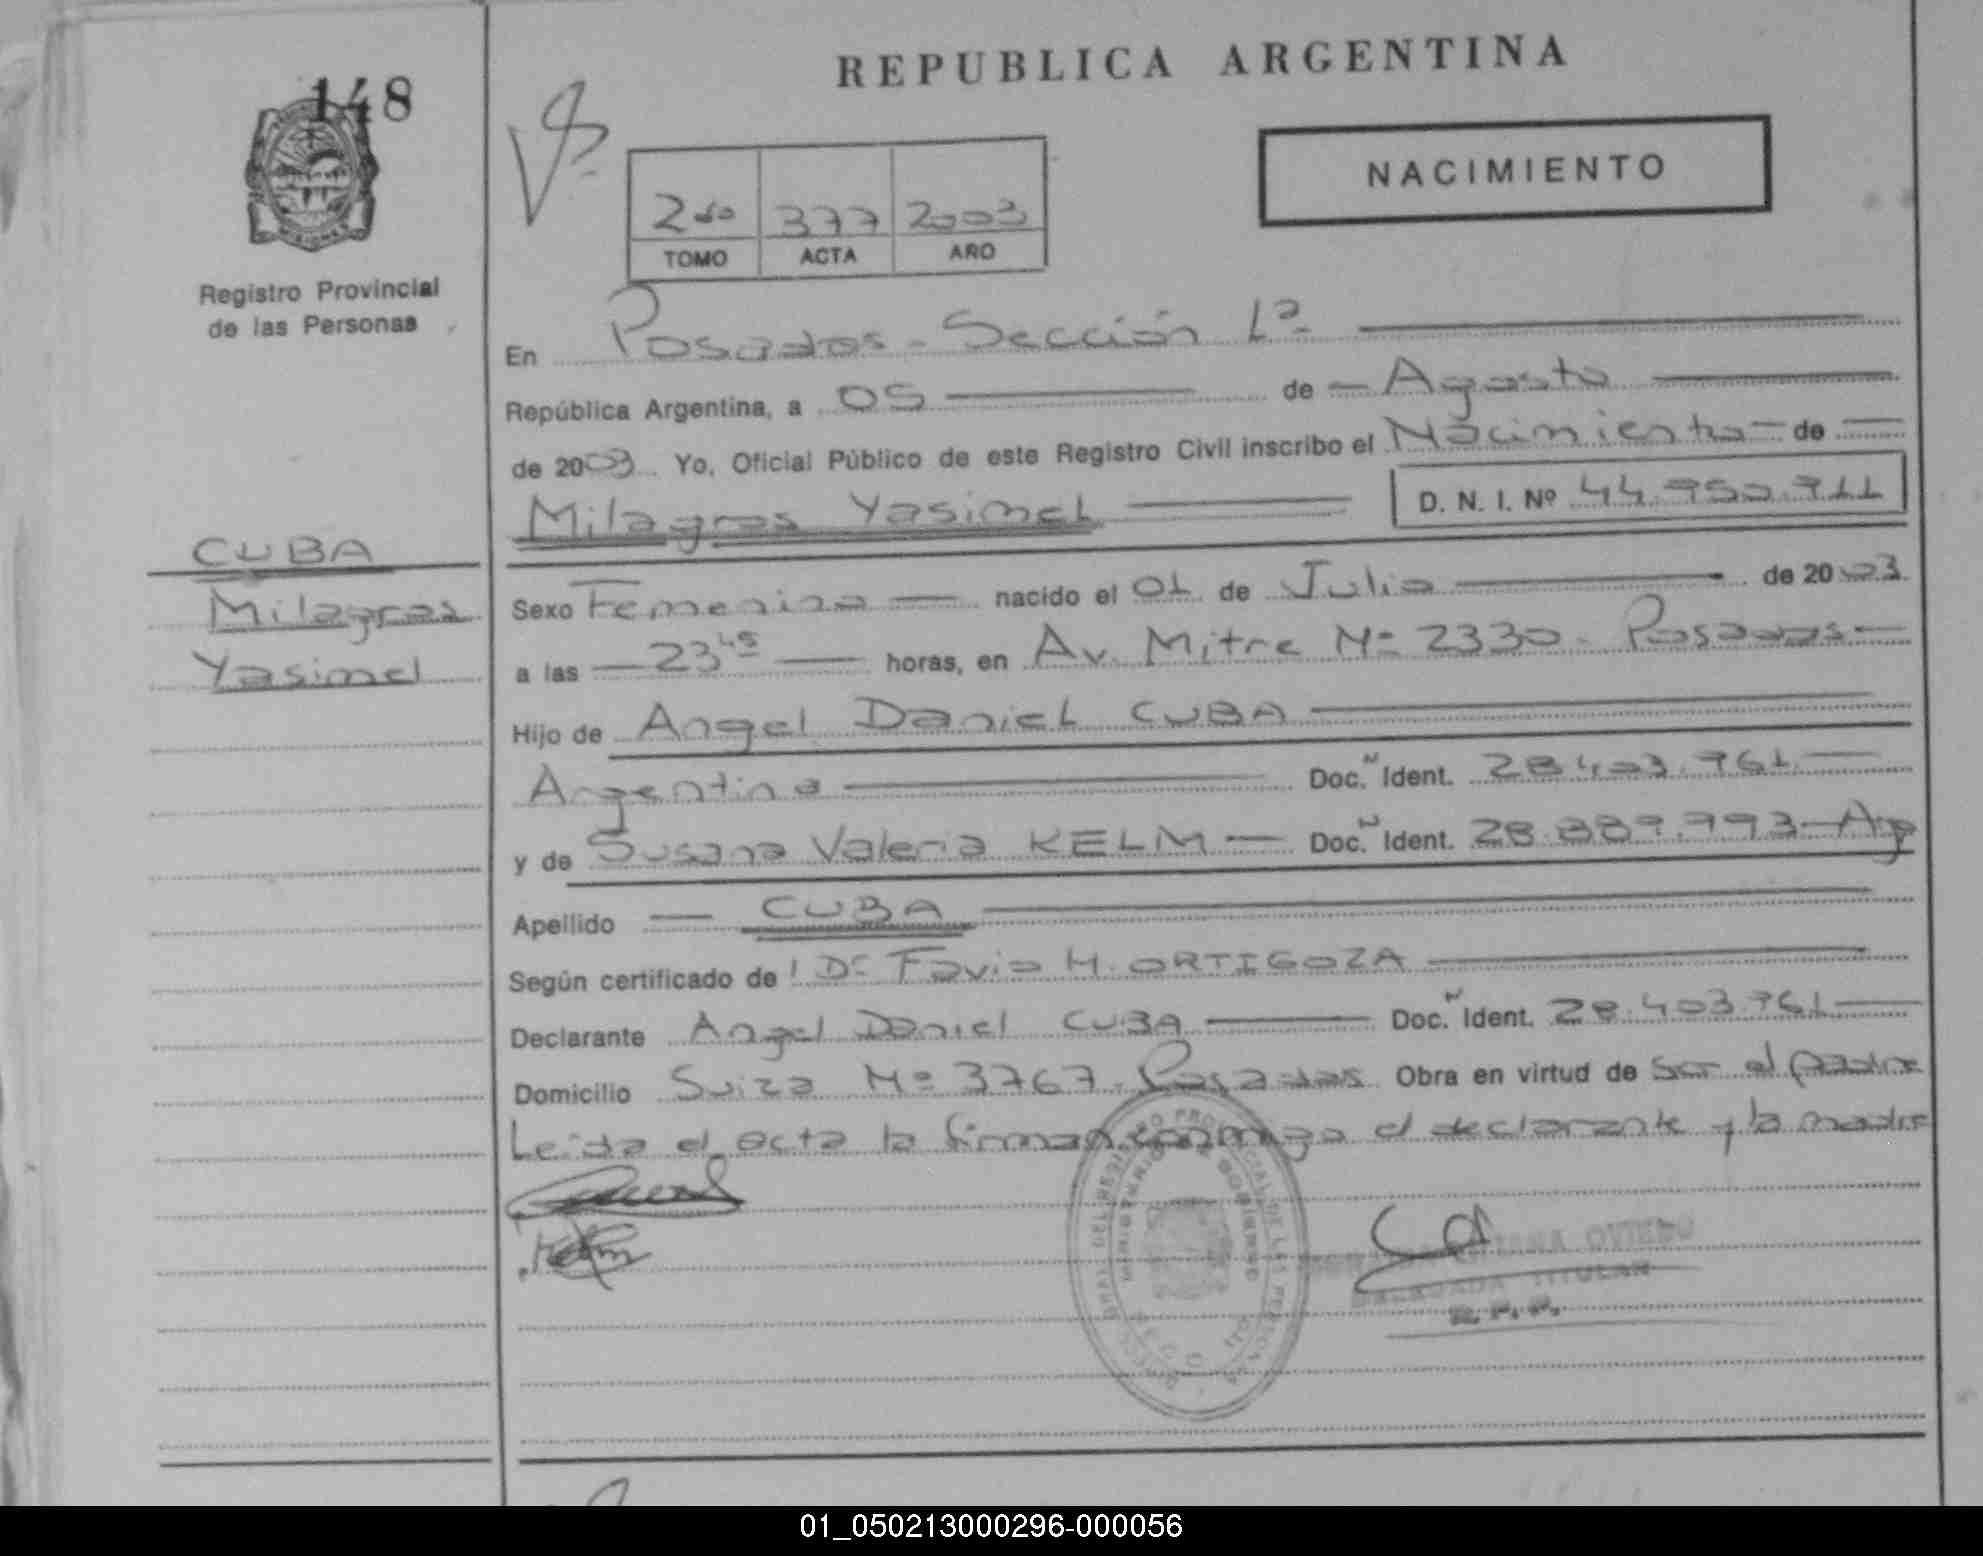 148
MISIONES
Registro Provincial
de las Personas
REPUBLICA ARGENTINA
NACIMIENTO
2do 377 2003
TOMO ACTA AÑO
En Posadas - Sección 1ª
República Argentina, a 05 de Agosto
de 2003 Yo, Oficial Público de este Registro Civil inscribo el Nacimiento de
Milagros Yasimel D. N. I. Nº 44.750.711
CUBA
Milagros
Yasimel
Sexo Femenino nacido el 01 de Julio de 2003
a las 23 45 horas, en Av. Mitre Nº 2330 - Posadas
Hijo de Angel Daniel CUBA
Argentino Doc. Ident. 28.403.761
y de Susana Valeria KELM Doc. Ident. 28.889.993 - Arg
Apellido CUBA
Según certificado de Dr Favio H. ORTIGOZA
Declarante Angel Daniel CUBA Doc. Ident. 28.403.761
Domicilio Suiza Nº 3767 - Posadas Obra en virtud de ser el padre
Leida el acta la firman conmigo el declarante y la madre
OVIEDO
DELEGADA TITULAR
R. P. P.
01_050213000296-000056